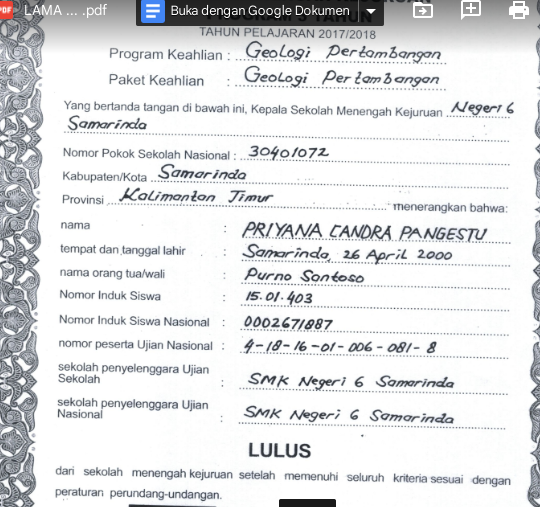 LAMA ... .pdf
Buka dengan Google Dokumen
PROGRAM 3 TAHUN
TAHUN PELAJARAN 2017/2018
Program Keahlian : Geologi Pertambangan
Paket Keahlian : Geologi Pertambangan
Yang bertanda tangan di bawah ini, Kepala Sekolah Menengah Kejuruan Negeri 6
Samarinda
Nomor Pokok Sekolah Nasional : 30401072
Kabupaten/Kota Samarinda
Provinsi Kalimantan Timur menerangkan bahwa:
nama : PRIYANA CANDRA PANGESTU
tempat dan tanggal lahir : Samarinda, 26 April 2000
nama orang tua/wali : Purno Santoso
Nomor Induk Siswa : 15.01.403
Nomor Induk Siswa Nasional : 0002671887
nomor peserta Ujian Nasional : 4-18-16-01-006-081-8
sekolah penyelenggara Ujian
Sekolah : SMK Negeri 6 Samarinda
sekolah penyelenggara Ujian
Nasional : SMK Negeri 6 Samarinda
LULUS
dari sekolah menengah kejuruan setelah memenuhi seluruh kriteria sesuai dengan
peraturan perundang-undangan.